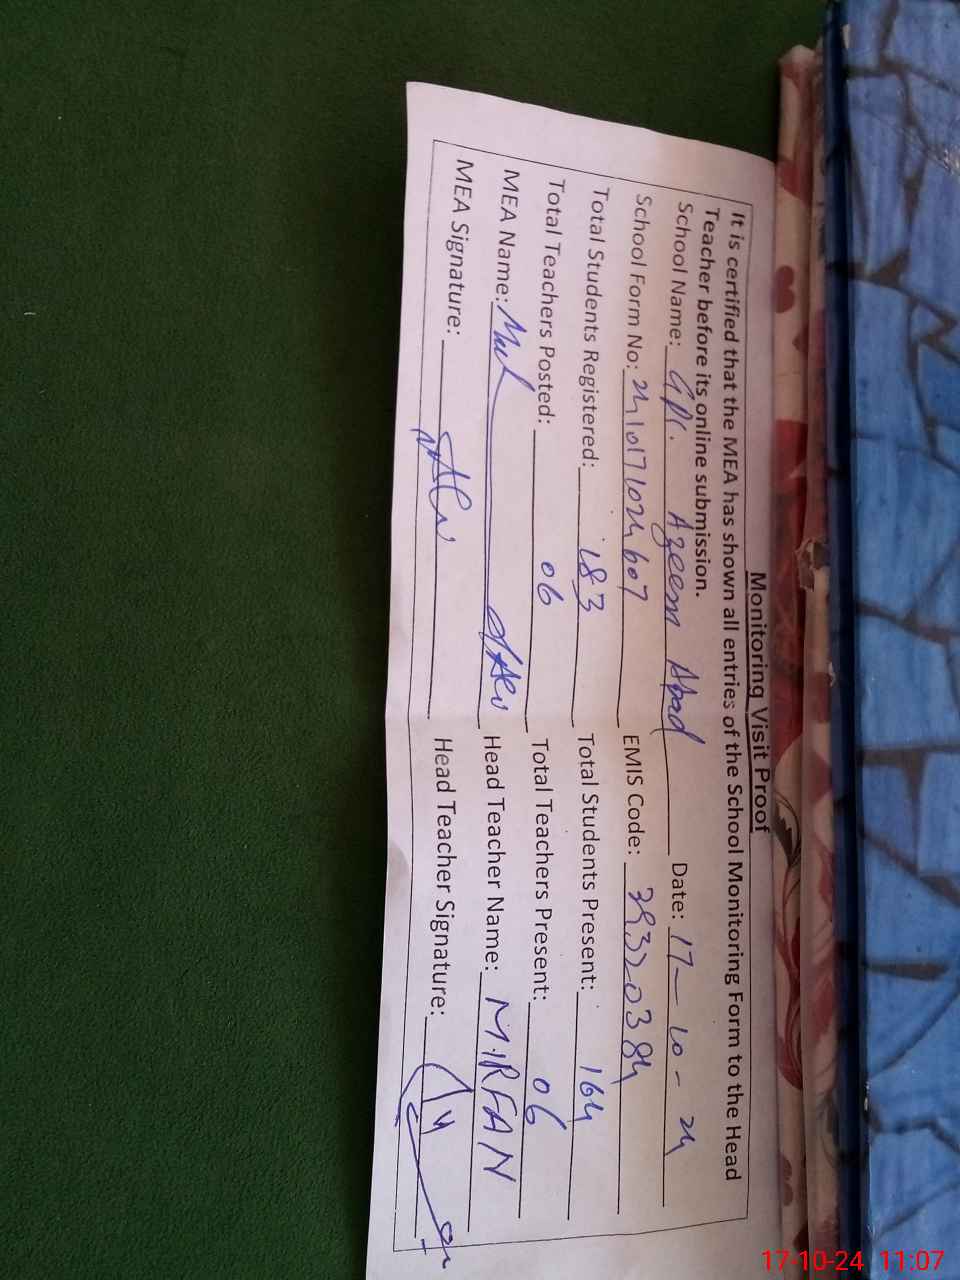 Monitoring Visit Proof
It is certified that the MEA has shown all entries of the School Monitoring Form to the Head
Teacher before its online submission.
School Name: GPS. Azeem Abad Date: 17-10-24
School Form No: 2410171024607 EMIS Code: 39320384
Total Students Registered: 183 Total Students Present: 164
Total Teachers Posted: 06 Total Teachers Present: 06
MEA Name: Head Teacher Name: M.IRFAN
MEA Signature: Head Teacher Signature:
17-10-24 11:07